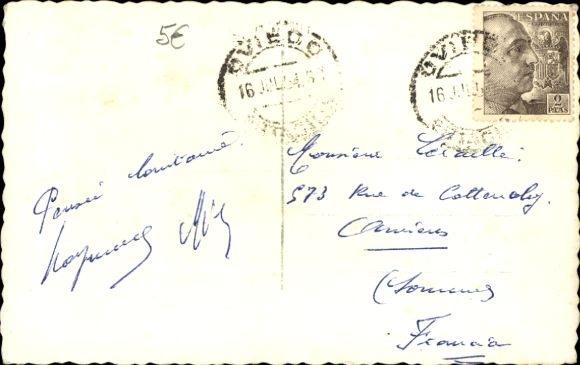 5€
OVIEDO
16 JUL 54
OVIEDO
16 JUL
ESPAÑA
2
PTAS
Pensée lointaine.
Raymond
Monsieur
573 Rue de Cottenchy.
Amiens
(Somme)
Francia